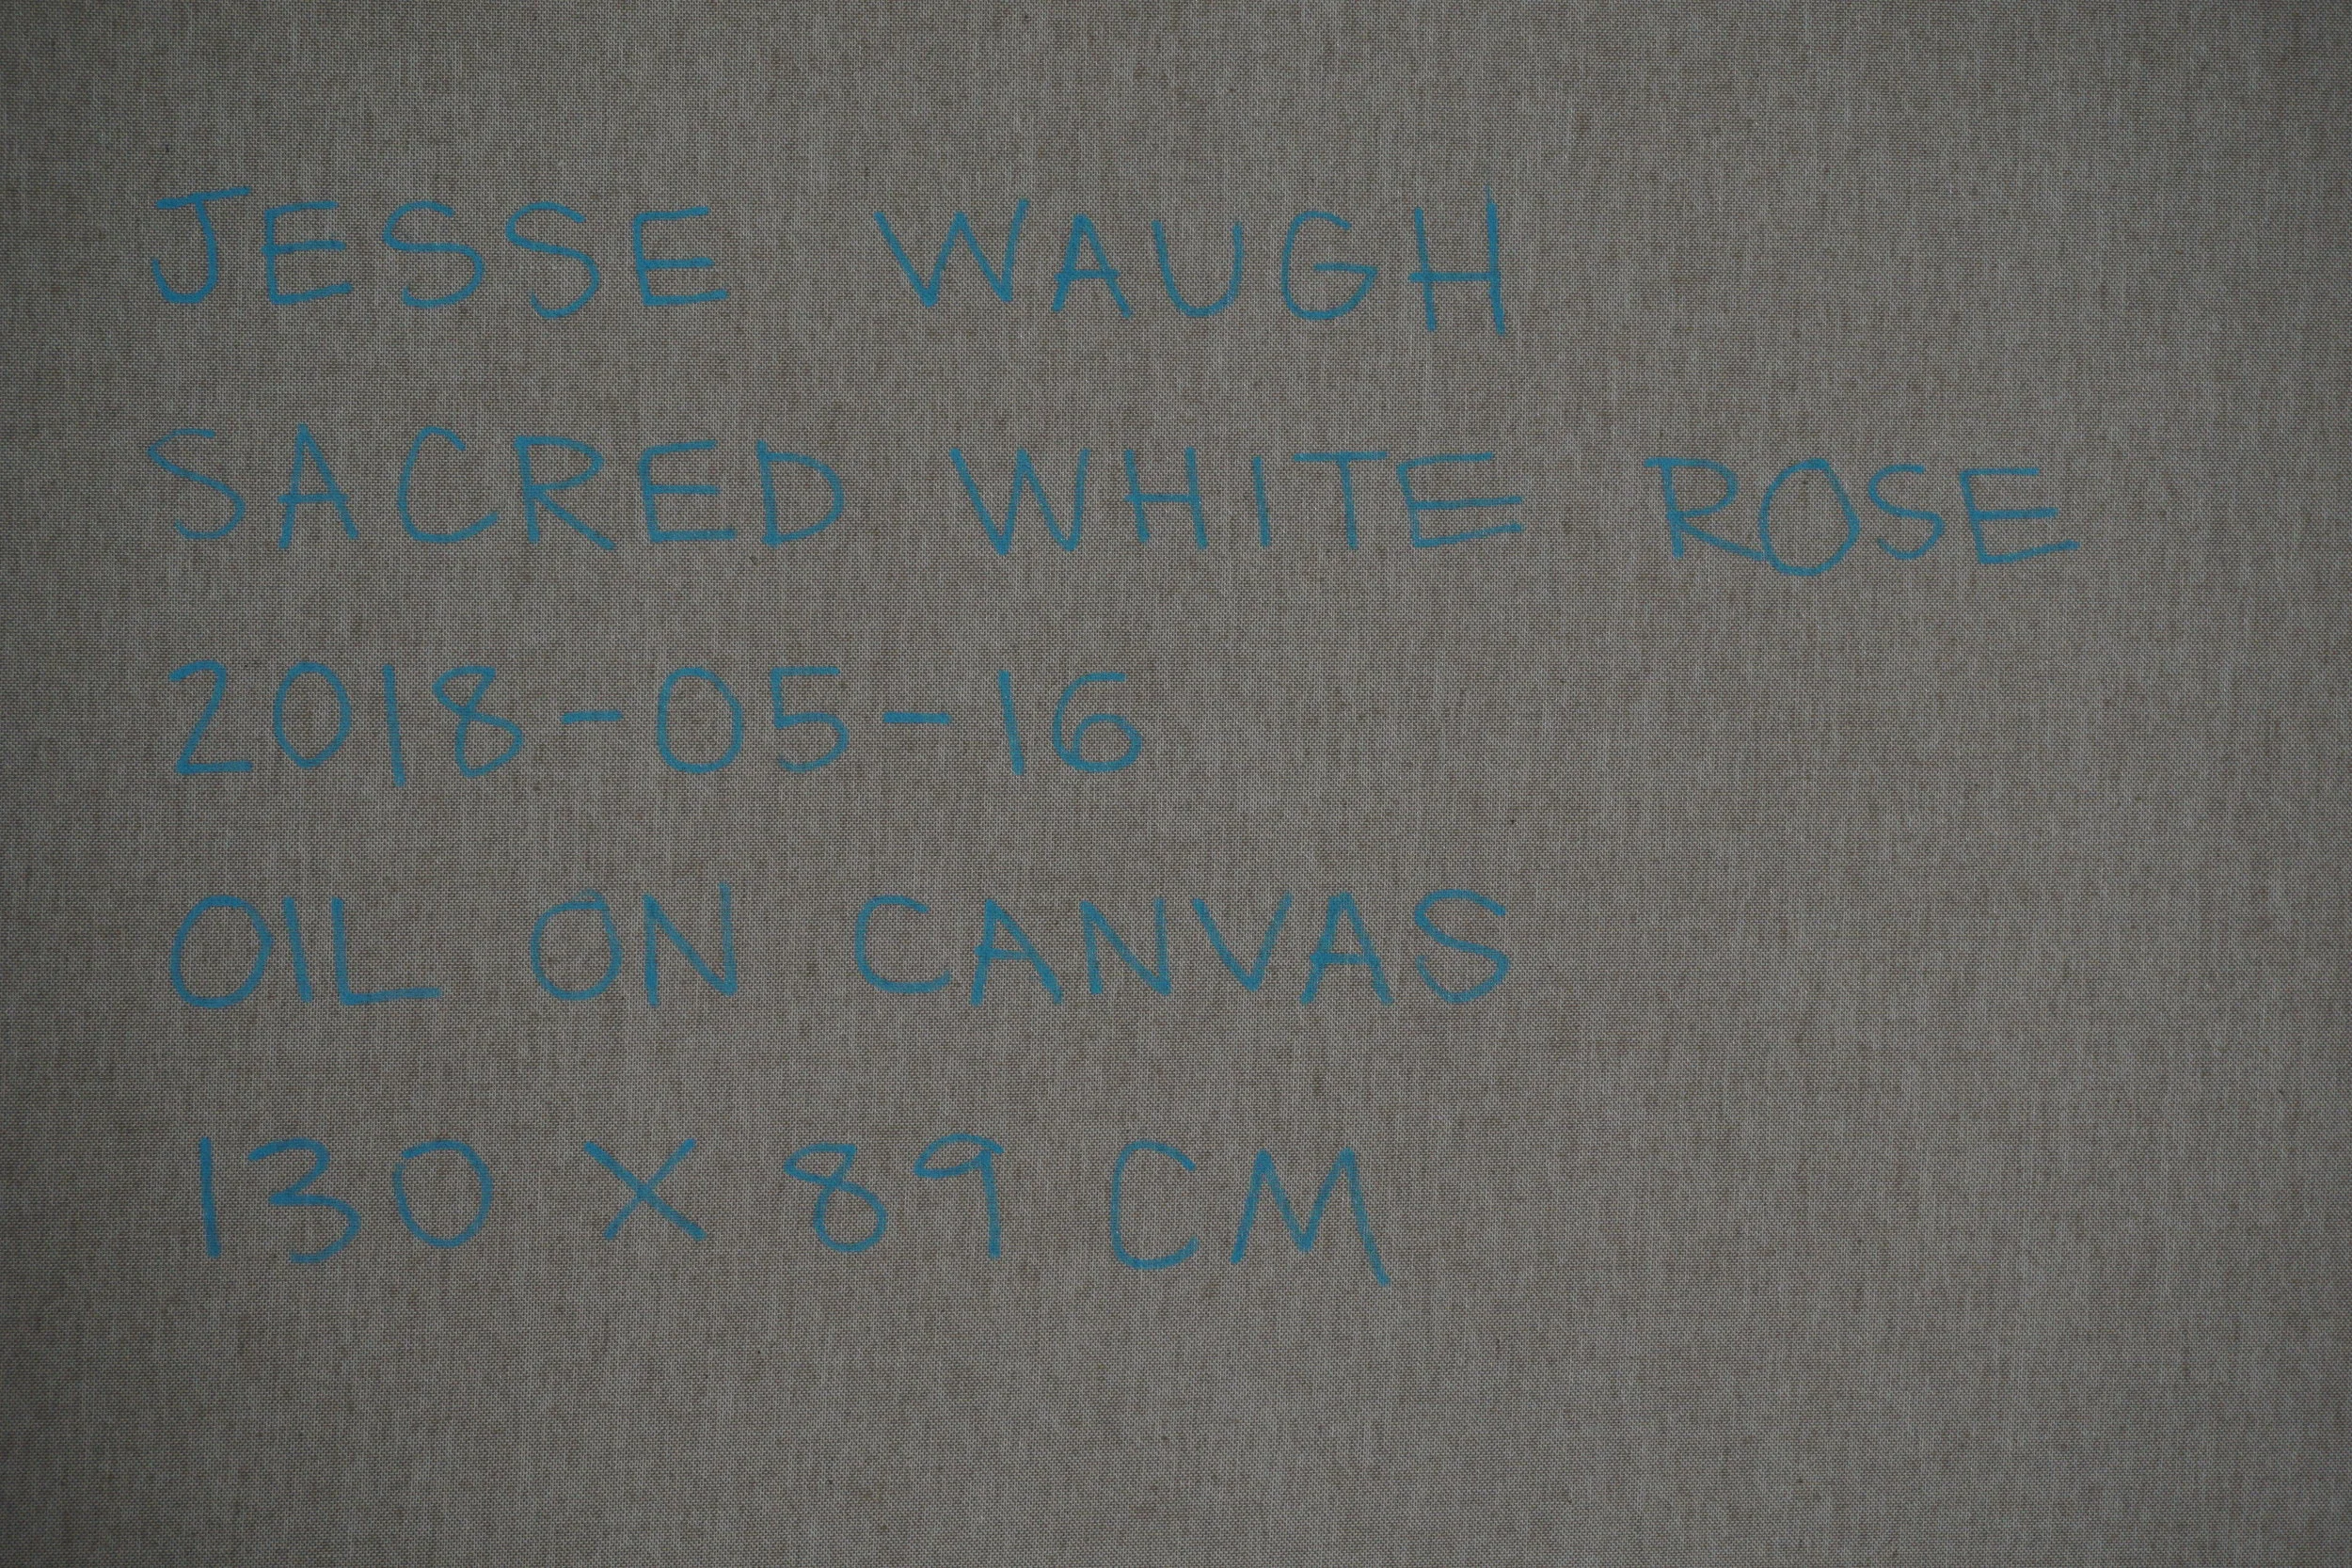 JESSE WAUGH
SACRED WHITE ROSE
2018-05-16
OIL ON CANVAS
130 X 89 CM